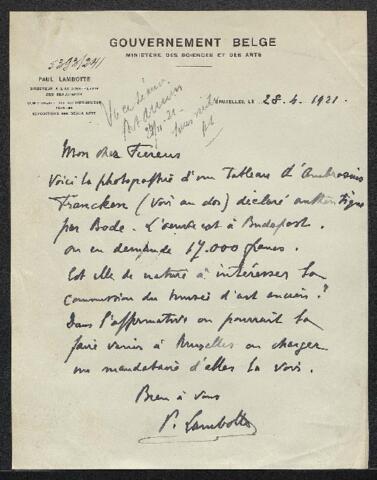 GOUVERNEMENT BELGE
MINISTÈRE DES SCIENCES ET DES ARTS
5293/241
PAUL LAMBOTTE
DIRECTEUR
DES BEAUX-ARTS
EXPOSITIONS DES BEAUX-ARTS
BRUXELLES, LE 28.4.1921.
Mon cher Fierens
Voici la photographie d'un Tableau d'Ambrosius
Francken (voir au dos) déclaré authentique
par Bode. L'œuvre est à Budapest.
on en demande 17.000 francs.
Est elle de nature à intéresser la
commission du musée d'art ancien?
Dans l'affirmative on pourrait la
faire venir à Bruxelles ou charger
un mandataire d'aller la voir.
Bien à vous
P. Lambotte